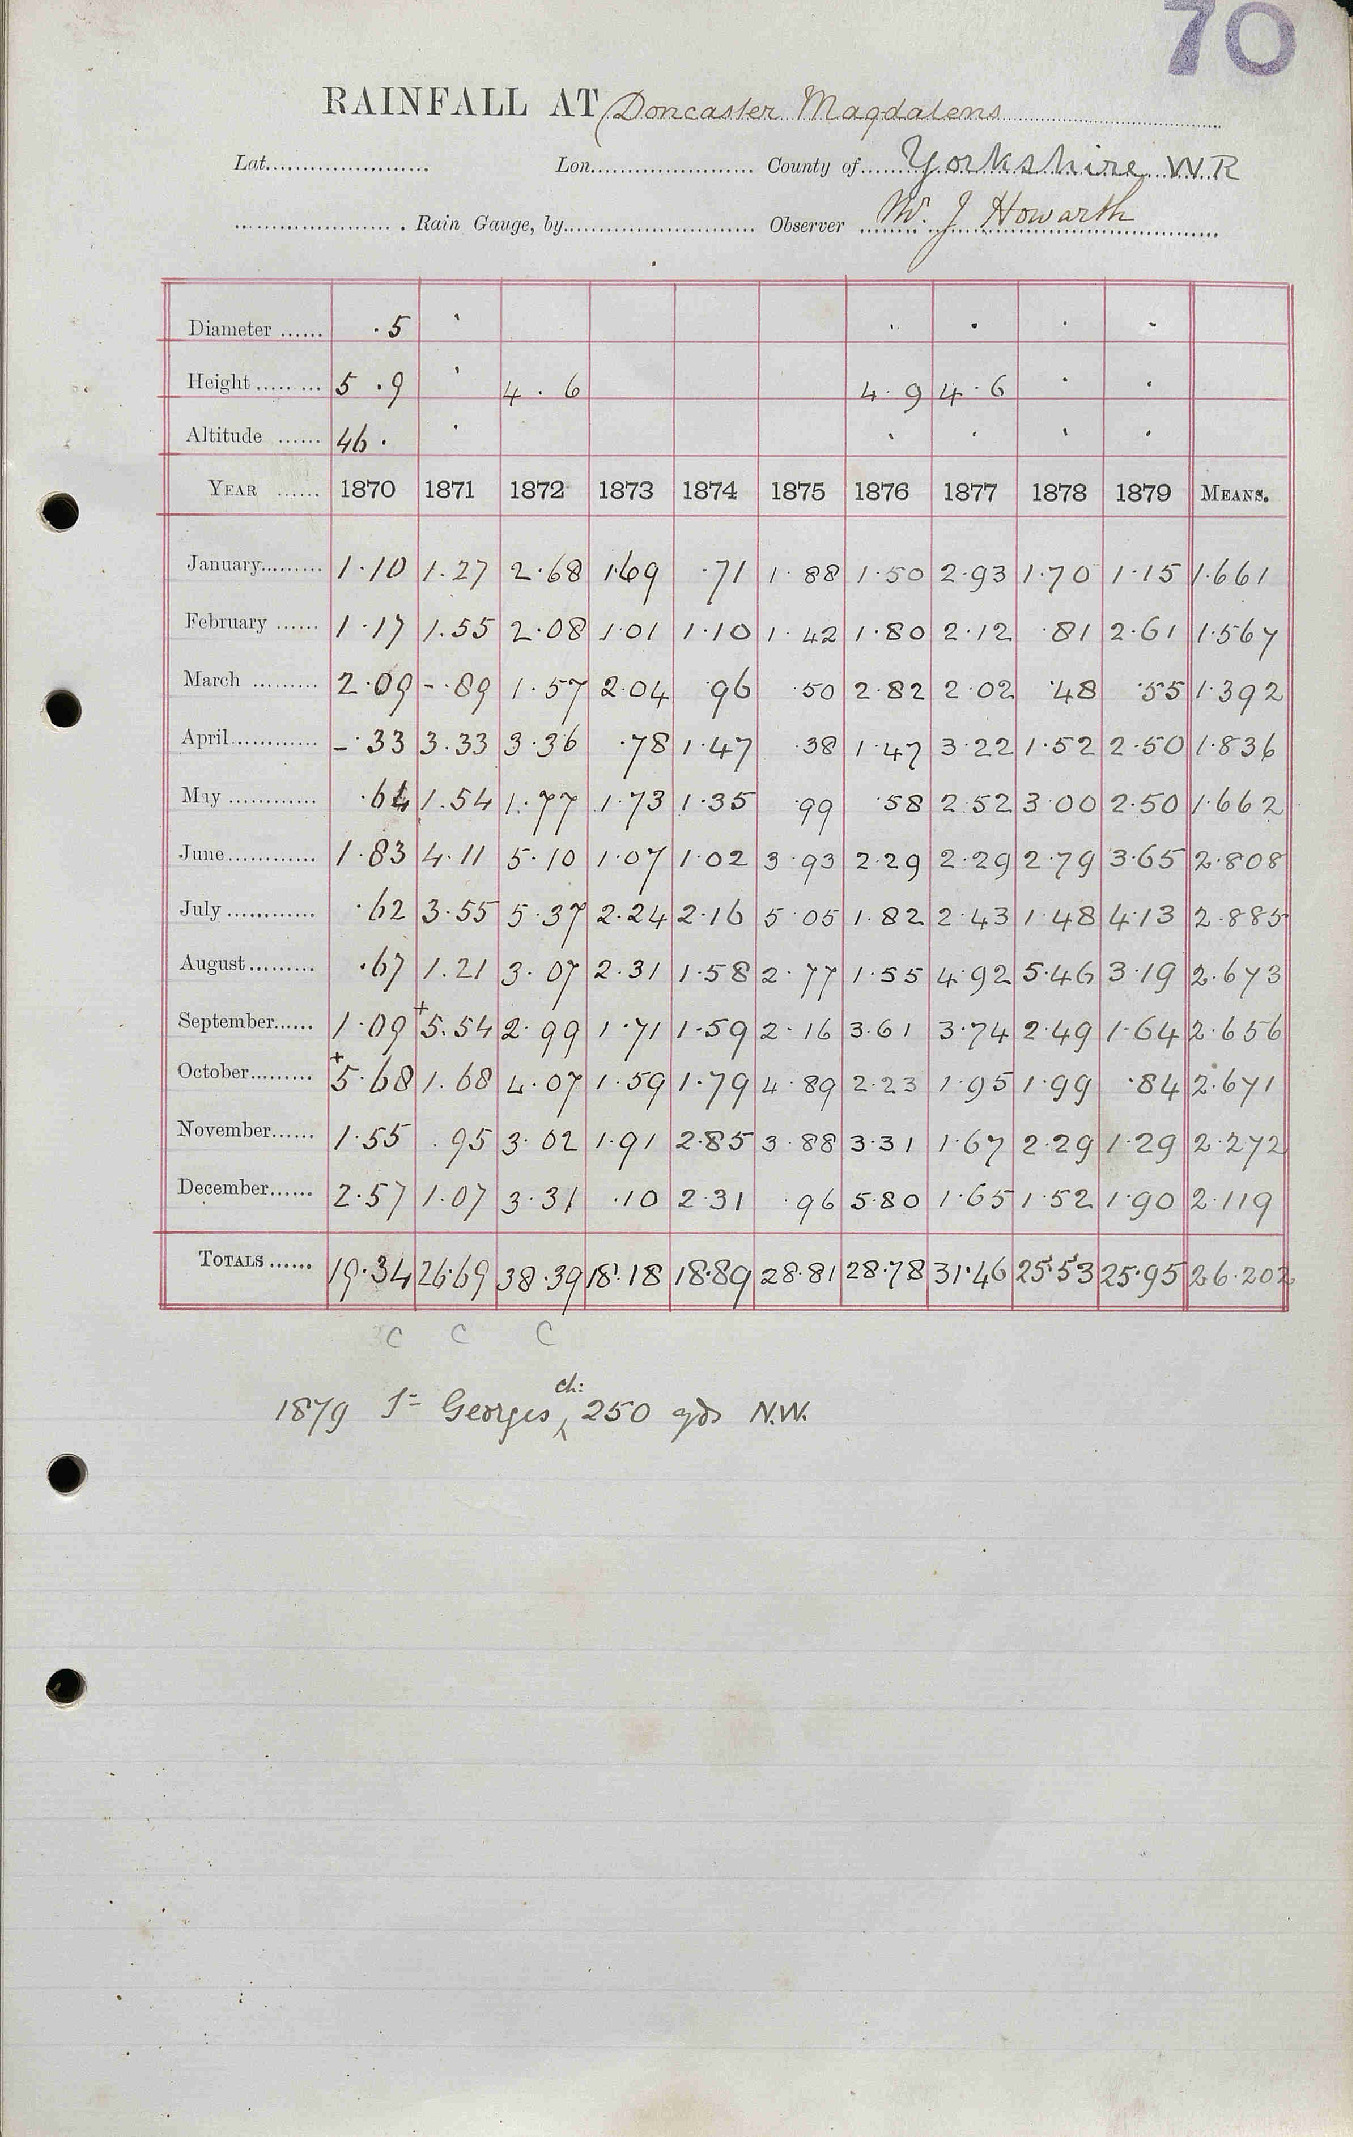 70
RAINFALL AT Doncaster Magdalens
Lat. Lon. County of Yorkshire W R
Rain Gauge, by Observer W. J Howarth
Diameter ...... .5
Height ...... 5 .9 4 . 6 4 . 9 4 . 6
Altitude ...... 46.
YEAR ...... 1870 1871 1872 1873 1874 1875 1876 1877 1878 1879 MEANS.
January 1.10 1.27 2.68 1.69 .71 1.88 1.50 2.93 1.70 1.15 1.661
February 1.17 1.55 2.08 1.01 1.10 1.42 1.80 2.12 .81 2.61 1.567
March 2.09 -.89 1.57 2.04 .96 .50 2.82 2.02 .48 .55 1.392
April -.33 3.33 3.36 .78 1.47 .38 1.47 3.22 1.52 2.50 1.836
May .64 1.54 1.77 1.73 1.35 .99 .58 2.52 3.00 2.50 1.662
June 1.83 4.11 5.10 1.07 1.02 3.93 2.29 2.29 2.79 3.65 2.808
July .62 3.55 5.37 2.24 2.16 5.05 1.82 2.43 1.48 4.13 2.885
August .67 1.21 3.07 2.31 1.58 2.77 1.55 4.92 5.46 3.19 2.673
September 1.09 +5.54 2.99 1.71 1.59 2.16 3.61 3.74 2.49 1.64 2.656
October +5.68 1.68 4.07 1.59 1.79 4.89 2.23 1.95 1.99 .84 2.671
November 1.55 .95 3.02 1.91 2.85 3.88 3.31 1.67 2.29 1.29 2.272
December 2.57 1.07 3.31 .10 2.31 .96 5.80 1.65 1.52 1.90 2.119
TOTALS 19.34 26.69 38.39 18.18 18.89 28.81 28.78 31.46 25.53 25.95 26.202
C C C
1879 St Georges ch: 250 yds N.W.